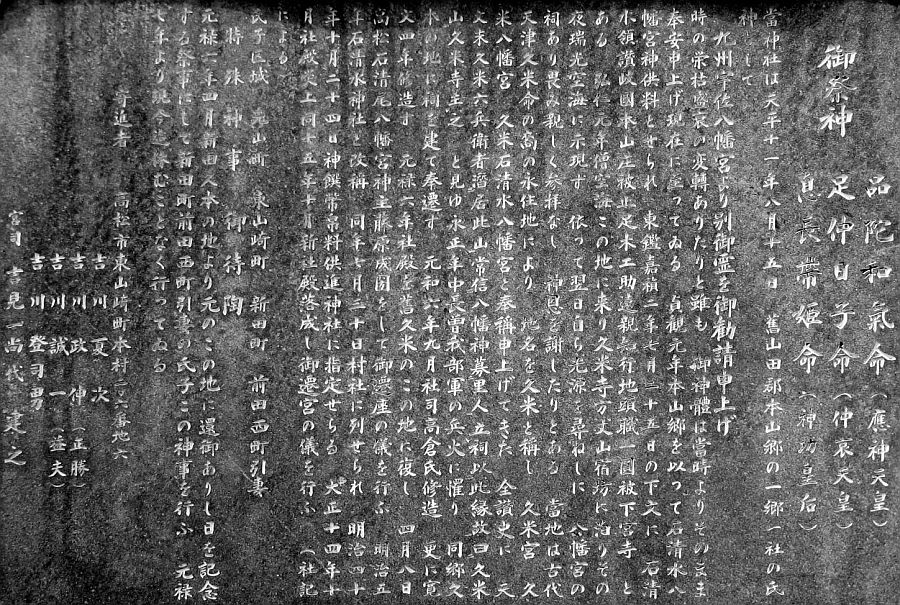 御祭神
品陀和氣命（應神天皇）
足仲日子命（仲哀天皇）
息長帯姫命（神功皇后）
當神社は天平十一年八月十五日　舊山田郡本山郷の一郷一社の氏
神として
九州宇佐八幡宮より別御霊を御勧請申上げ
時の栄枯盛衰の変轉ありたりと雖も　御神體は當時よりそのまま
奉安申上げ現在に座ってゐる　貞観元年本山郷を以って石清水八
幡宮神供料とせられ　東鑑嘉禎二年七月二十五日の下文に　石清
水領讃岐國本山庄被止足木工助遠親為行地頭職一圓被下宮寺　と
ある　弘仁元年僧空海この地に来り久米寺方丈山宿坊に泊りその
夜瑞光空海に示現す　依って翌日自ら光源を尋ねしに　八幡宮の
祠あり畏み親しく参拝なし　神恩を謝したりとある　當地は古代
天津久米命の裔の永住地により　地名を久米と稱し　久米宮　久
米八幡宮　久米石清水八幡宮と奉稱申上げてきた　全讃史に　天
文末久米六兵衛者潜居此山常信八幡神募里人立祠以此縁故曰久米
山久米寺主之　と見ゆ永正年中長曽我部軍の兵火に罹り　同郷久
木の地に祠を建て奉遷す　元和六年九月社司高倉氏修造　更に寛
文四年修造す　元禄六年社殿を舊久米のこの地に復し　四月八日
高松石清尾八幡宮神主藤原成圀をして御遷座の儀を行ふ　明治五
年石清水神社と改稱　同年七月三十日村社に列せられ　明治四十
年十月二十四日神饌幣帛料供進神社に指定せらる　大正十四年十
月社殿炎上同十五年十月新社殿落成し御遷宮の儀を行ふ　（社記
による
氏子区域　元山町　東山崎町　新田町　前田西町引妻
特殊神事　御待陶
元禄一年四月新田久本の地より元のこの地に還御ありし日を記念
する祭事にして新田町前田西町引妻の氏子この神事を行ふ　元禄
七年より現今迄休むことなく行ってゐる
寄進者　高松市東山崎町本村二六番地六
吉川夏次
吉川政仲（正勝）
吉川誠一（益夫）
吉川登司男
宮司　吉見一尚代　建之